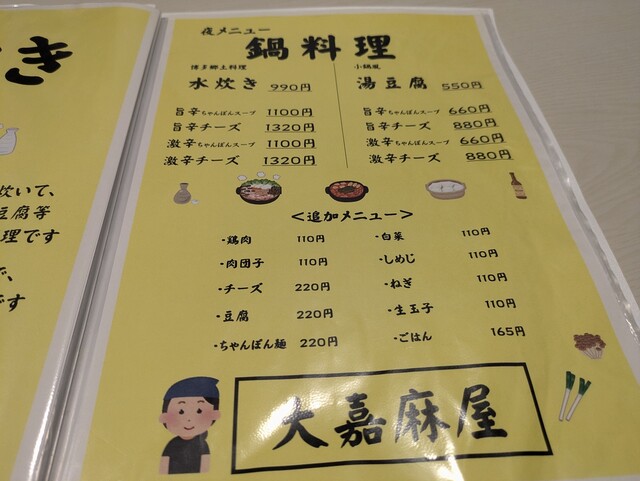 き
炊いて、
豆腐等
理です
で、
です
夜メニュー
鍋料理
博多郷土料理
水炊き 990円
旨辛ちゃんぽんスープ 1100円
旨辛チーズ 1320円
激辛ちゃんぽんスープ 1100円
激辛チーズ 1320円
小鍋風
湯豆腐 550円
旨辛ちゃんぽんスープ 660円
旨辛チーズ 880円
激辛ちゃんぽんスープ 660円
激辛チーズ 880円
<追加メニュー>
・鶏肉 110円
・肉団子 110円
・チーズ 220円
・豆腐 220円
・ちゃんぽん麺 220円
・白菜 110円
・しめじ 110円
・ねぎ 110円
・生玉子 110円
・ごはん 165円
大嘉麻屋